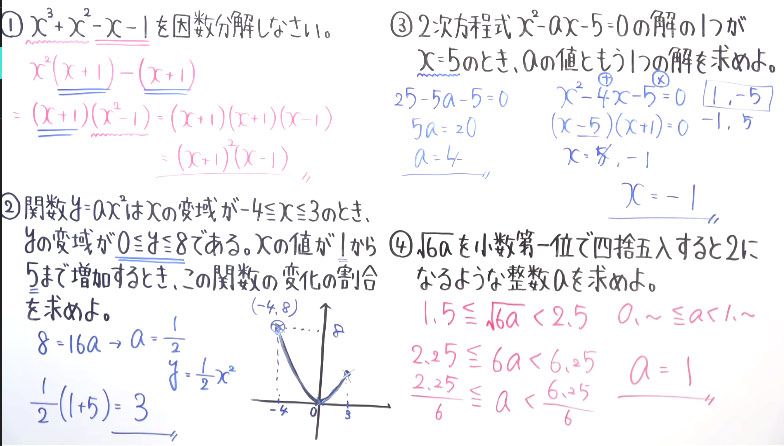 ① x³+x²-x-1を因数分解しなさい。
x²(x+1)-(x+1)
=(x+1)(x²-1)=(x+1)(x+1)(x-1)
=(x+1)²(x-1)
② 関数y=ax²はxの変域が-4≦x≦3のとき、
yの変域が0≦y≦8である。xの値が1から
5まで増加するとき、この関数の変化の割合
を求めよ。
8=16a→a=1/2
y=1/2x²
1/2(1+5)=3
(-4,8)
8
-4 0 3
③ 2次方程式x²-ax-5=0の解の1つが
x=5のとき、aの値ともう1つの解を求めよ。
25-5a-5=0
5a=20
a=4
+ ×
x²-4x-5=0
(x-5)(x+1)=0
x=5,-1
1,-5
-1,5
x=-1
④ √6aを小数第一位で四捨五入すると2に
なるような整数aを求めよ。
1.5≦√6a<2.5
2.25≦6a<6.25
2.25/6≦a<6.25/6
0.~≦a<1.~
a=1